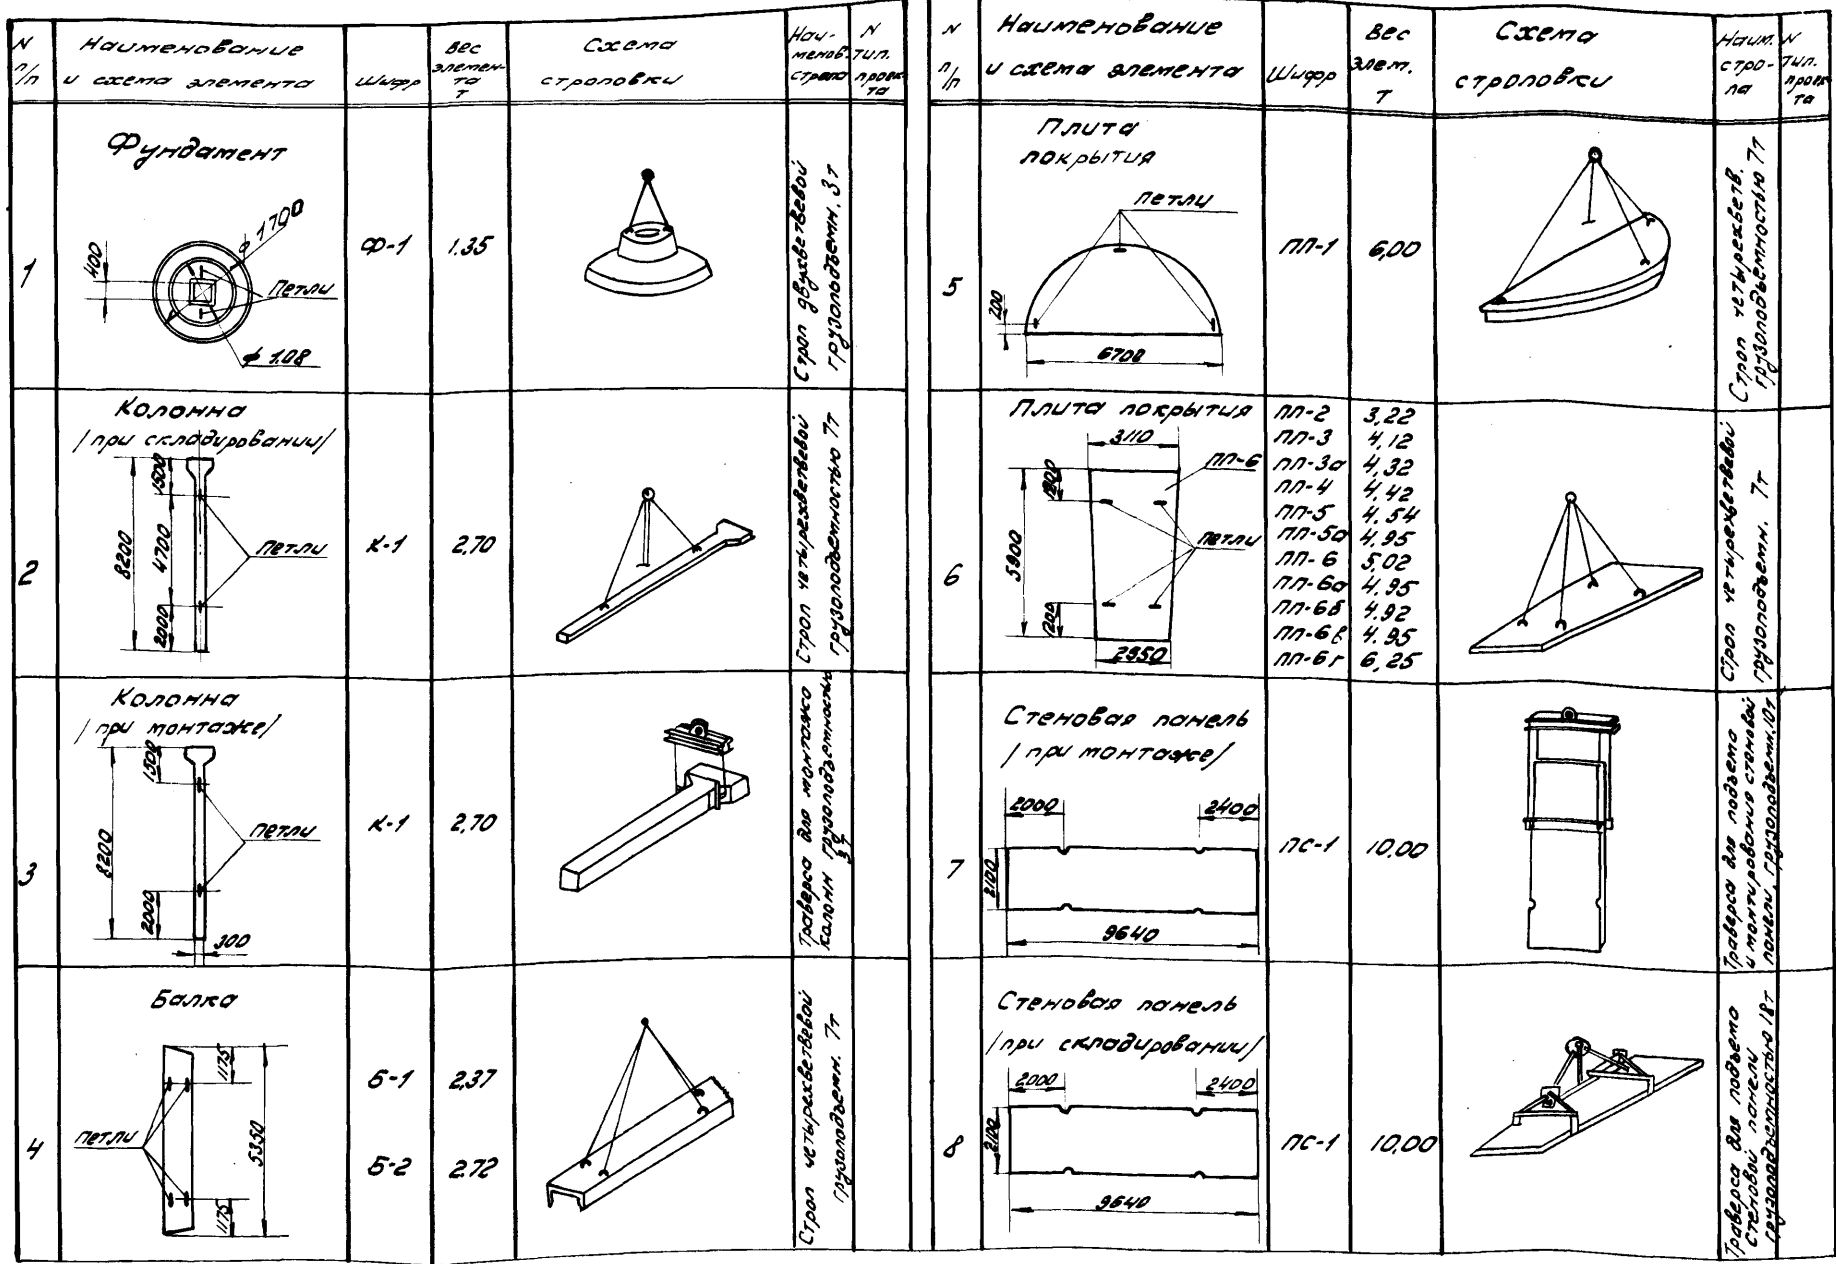 N п/п
Наименование и схема элемента
Шифр
Вес элемен- та т
Схема строповки
Наи- менов. стропа
N тип. проек та
1
Фундамент
400
ф 1700
Петли
ф 1.08
Ф-1
1.35
Строп двухветвевой
грузоподъемн. 3т
2
Колонна
/при складировании/
1500
8200
4700
2000
Петли
К-1
2,70
Строп четырехветвевой
грузоподъемностью 7т
3
Колонна
/при монтаже/
1500
8200
2000
300
Петли
К-1
2,70
Траверса для монтажа
колонн грузоподъемностью
3т
4
Балка
1175
5350
1175
Петли
Б-1
2,37
Б-2
2.72
Строп четырехветвевой
грузоподъемн. 7т
N п/п
Наименование
и схема элемента
Шифр
Вес элем. Т
Схема
строповки
Наим. стро- па
N тип. проек та
5
Плита
покрытия
Петли
200
6700
ПП-1
6,00
Строп четырехветв.
грузоподъемностью 7т
6
Плита покрытия
3110
ПП-6
5900
1200
Петли
2950
ПП-2 3,22
ПП-3 4,12
ПП-3а 4,32
ПП-4 4,42
ПП-5 4.54
ПП-5а 4.95
ПП-6 5,02
ПП-6а 4.95
ПП-6б 4.92
ПП-6в 4.95
ПП-6г 6,25
Строп четырехветвевой
грузоподъемн. 7т
7
Стеновая панель
/при монтаже/
2000
2400
2100
9640
ПС-1
10,00
Траверса для подъема
и монтирования стеновой
панели, грузоподъемн.10т
8
Стеновая панель
/при складировании/
2000
2400
2100
9640
ПС-1
10,00
Траверса для подъема
стеновой панели
грузоподъемностью 18т